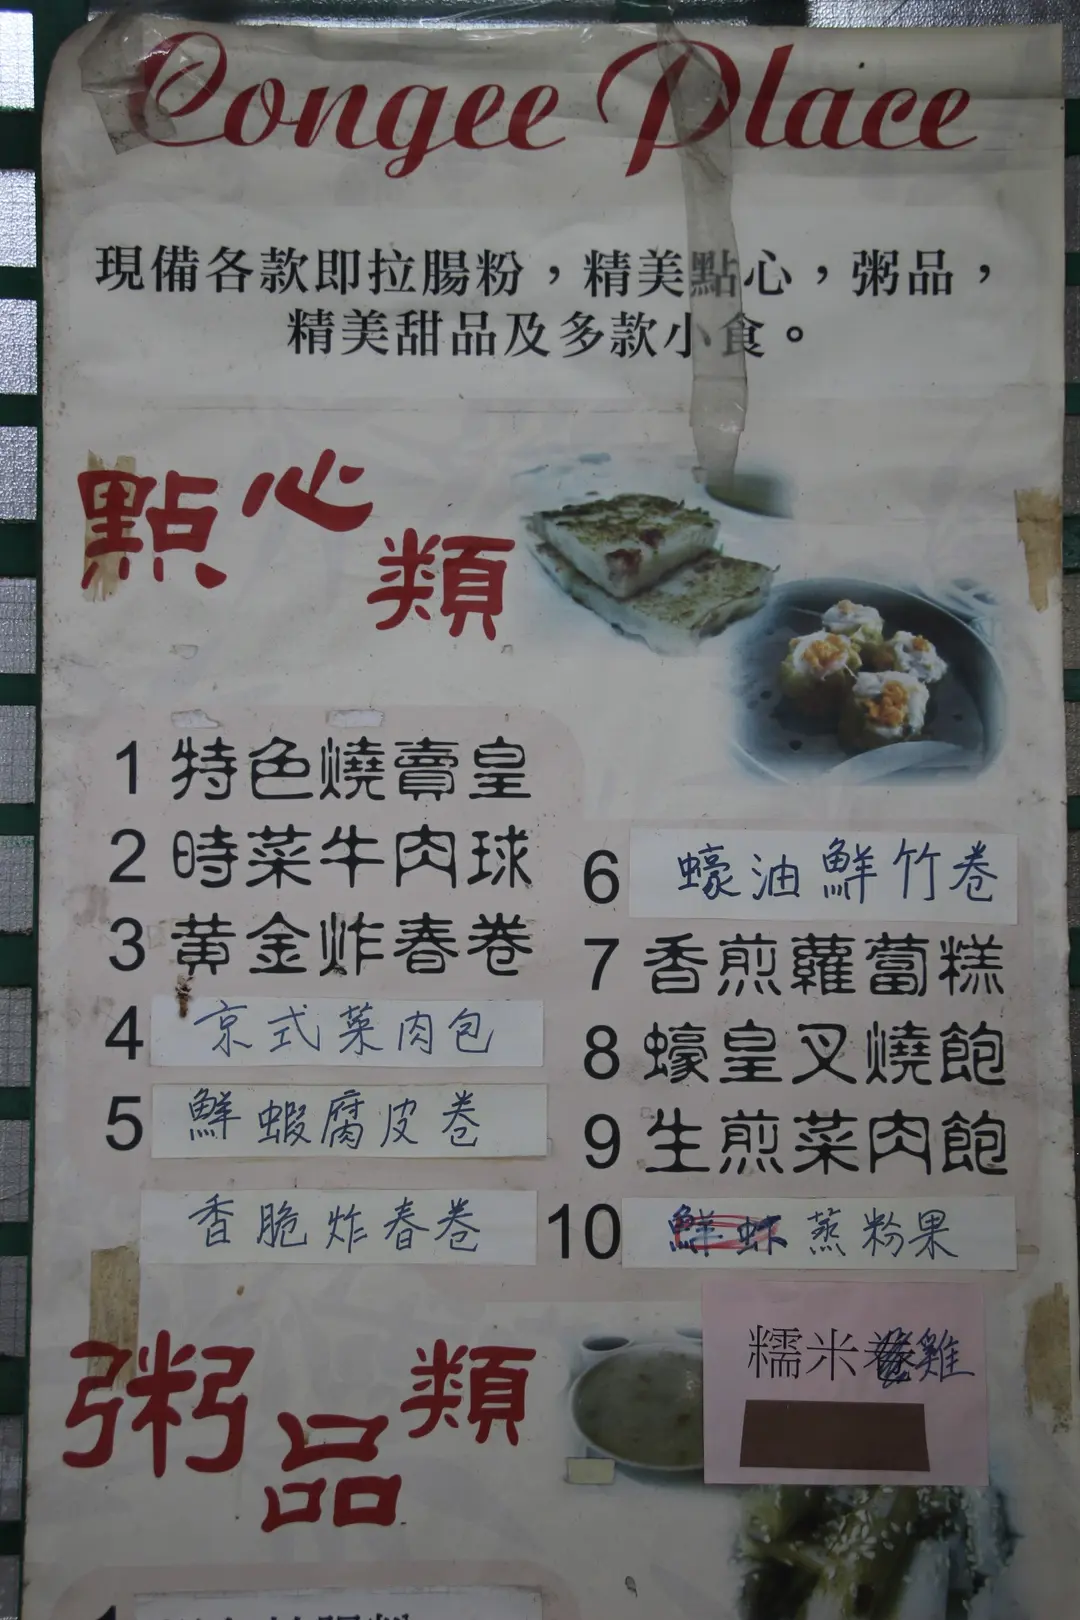 Congee Place
現備各款即拉腸粉，精美點心，粥品，
精美甜品及多款小食。
點心類
1 特色燒賣皇
2 時菜牛肉球
3 黃金炸春卷
4 京式菜肉包
5 鮮蝦腐皮卷
香脆炸春卷
6 蠔油鮮竹卷
7 香煎蘿蔔糕
8 蠔皇叉燒飽
9 生煎菜肉飽
10 鮮虾蒸粉果
糯米雞
粥品類
1